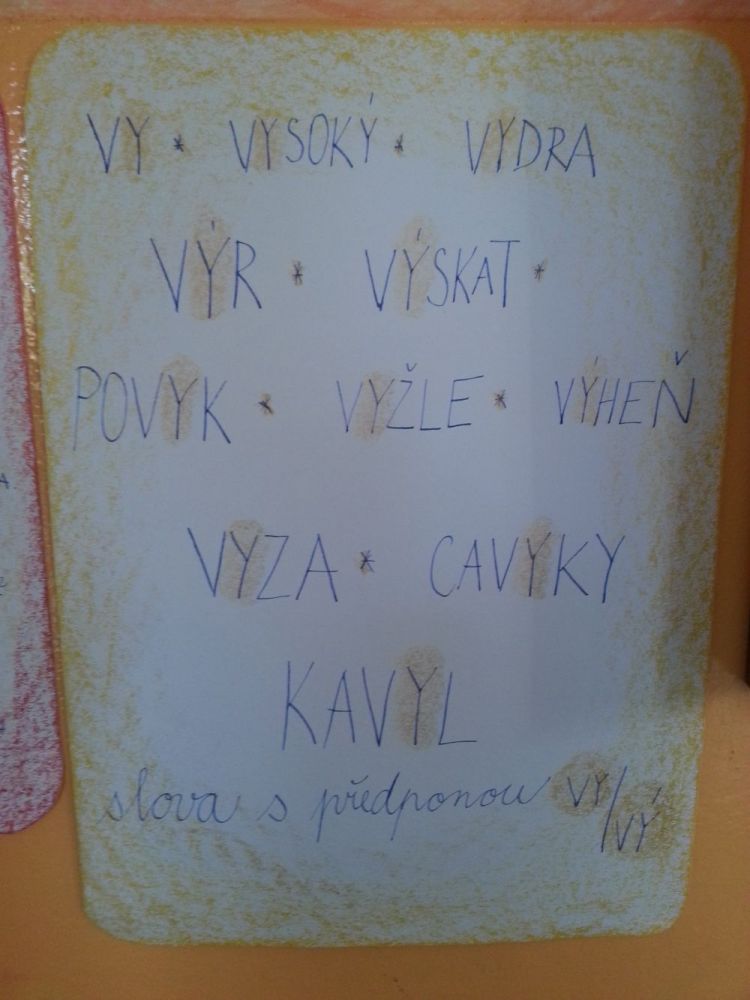 VY * VYSOKÝ * VYDRA
VÝR * VÝSKAT *
POVYK * VYŽLE * VÝHEŇ
VYZA * CAVYKY
KAVYL
slova s předponou VY/VÝ